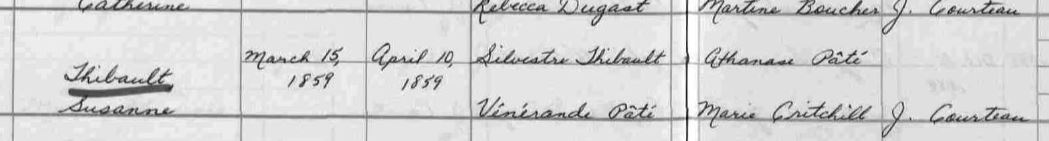 Catherine Rebecca Dugast Martine Boucher J. Courteau
March 15, April 10, Silvestre Thibault Athanase Pâté
Thibault 1859 1859
Susanne Vénérande Pâté Marie Critchill J. Courteau